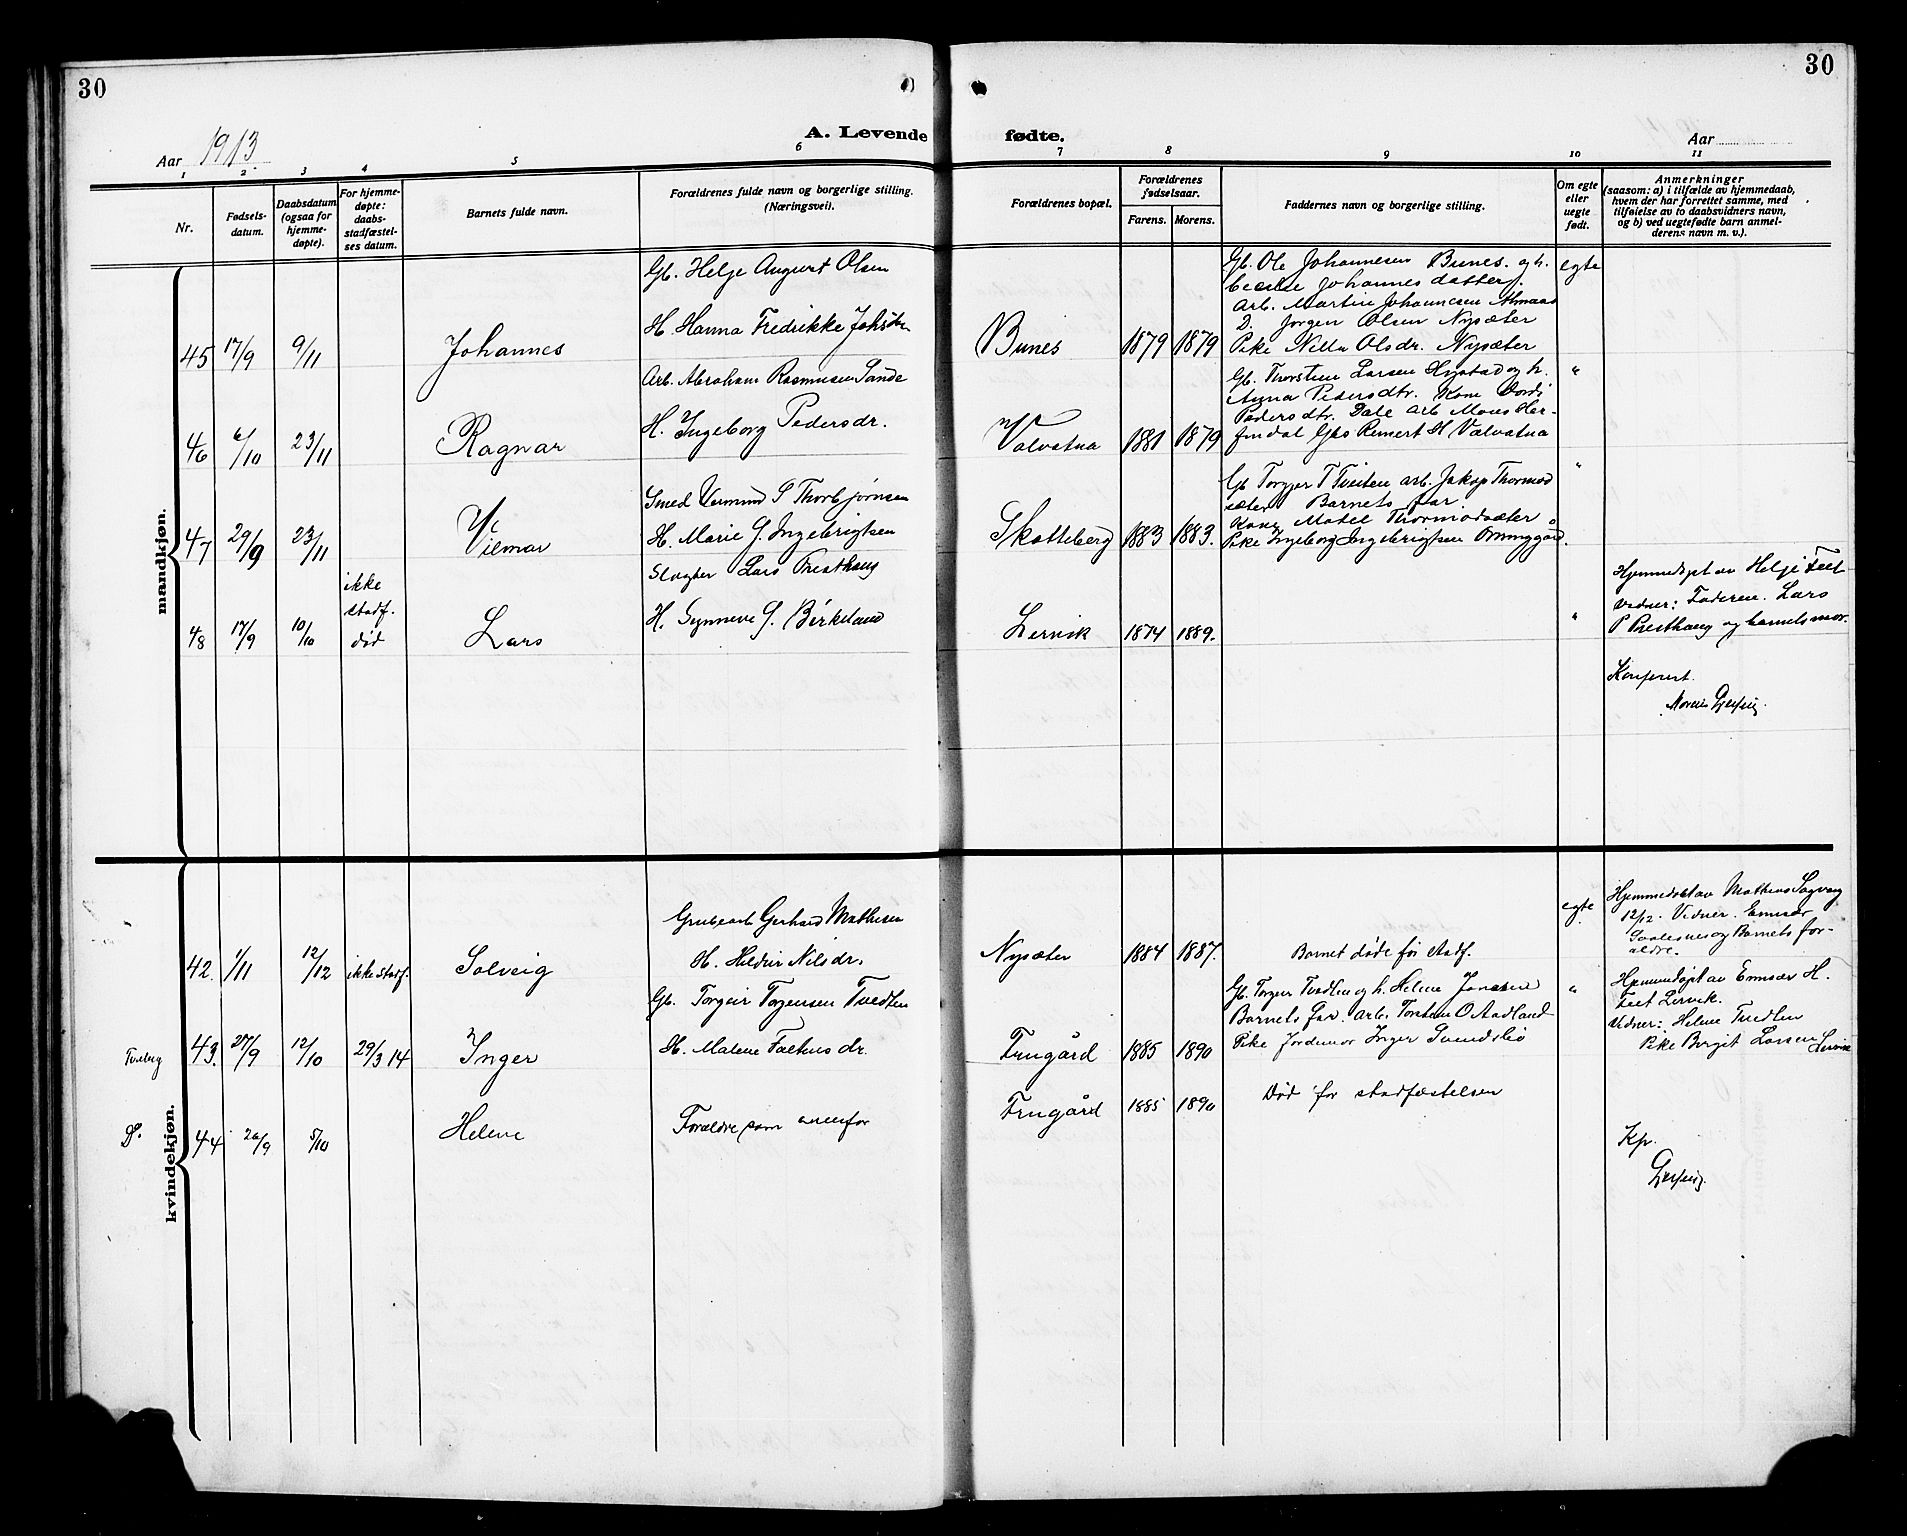 30
30
Aar 1913.
A. Levende fødte.
Aar
1 2. 3 4 5 6 7 8 9 10 11
Nr.
Fødsels-
datum.
Daabsdatum
(ogsaa for
hjemme-
døpte).
For hjemme-
døpte:
daabs-
stadfæstel-
ses datum.
Barnets fulde navn.
Forældrenes fulde navn og borgerlige stilling.
(Næringsvei).
Forældrenes bopæl.
Forældrenes
fødselsaar.
Farens. Morens.
Faddernes navn og borgerlige stilling.
Om egte
eller
uegte
født.
Anmerkninger
(saasom: a) i tilfælde av hjemmedaab,
hvem der har forrettet samme, med
tilføielse av to daabsvidners navn,
og b) ved uegtefødte barn anmel-
derens navn m. v.).
mandkjøn.
45 17/9 9/11 Johannes
Gb. Helje August Olsen
H. Hanna Fredrikke
Bunes 1879 1879
Gb. Ole Johannesen Bunes. og h.
Johannesdatter.
Arb. Martin Johannesen
D. Jørgen Olsen Nysæter
Pike Nilla Olsdr. Nysæter
egte
46 6/10 23/11 Ragnar
Arb. Abraham Rasmusen Sande
H. Ingeborg Pedersdr.
Valvatna 1881 1879
Gb. Thorstein Larsen Hystad og h.
Anna Pedersdtr. Kone
Pedersdtr. Dale arb Mons Her-
findal Gbs Reinert H Valvatna
"
47 29/9 23/11 Vilmar
Smed Vermund S Thorbjørnsen
H. Marie G. Ingebrigtsen
Skotteberg 1883 1883.
Gb Torgjer T Tveiten arb. Jakop Thormod
sæter Barnets far
Kone Thormodsæter
Pike Ingeborg Ingebrigtsen
"
48 17/9 10/10 ikke
stadf.
død
Lars
Slagter Lars Presthaug
H. Synneve G. Birkeland
Lervik 1874 1889.
"
Hjemmedøpt av Helje Feet
Vidner: Faderen. Lars
P Presthaug og barnets mor.
Konferert.
kvindekjøn.
42. 1/11 12/12 ikke stadf. Solveig
Grubearb Gerhard Mathisen
H. Nilsdr.
Nysæter 1884 1887.
Barnet døde før stadf.
egte
Hjemmedøbt av Mathias Sagvaag
12/12. Vidner.
og Barnets for-
ældre.
Tvilling 43. 27/9 12/10 29/3 14 Inger
Gb. Torgeir Torgensen Tvedten
H. Malene
Frugård 1885 1890
Gb. Torgeir Tvedten og h. Helene
Barnets far. arb. Torstein O Aadland
Pike Jordemor Inger
"
Hjemmedøpt av H.
Feet Lervik.
Vidner: Helene Tvedten
Pike Birgit Larsen Lervik
D. 44 26/9 5/10 Helene
Forældre som ovenfor
Frugård 1885 1890
Død før stadfæstelsen
Kfr.